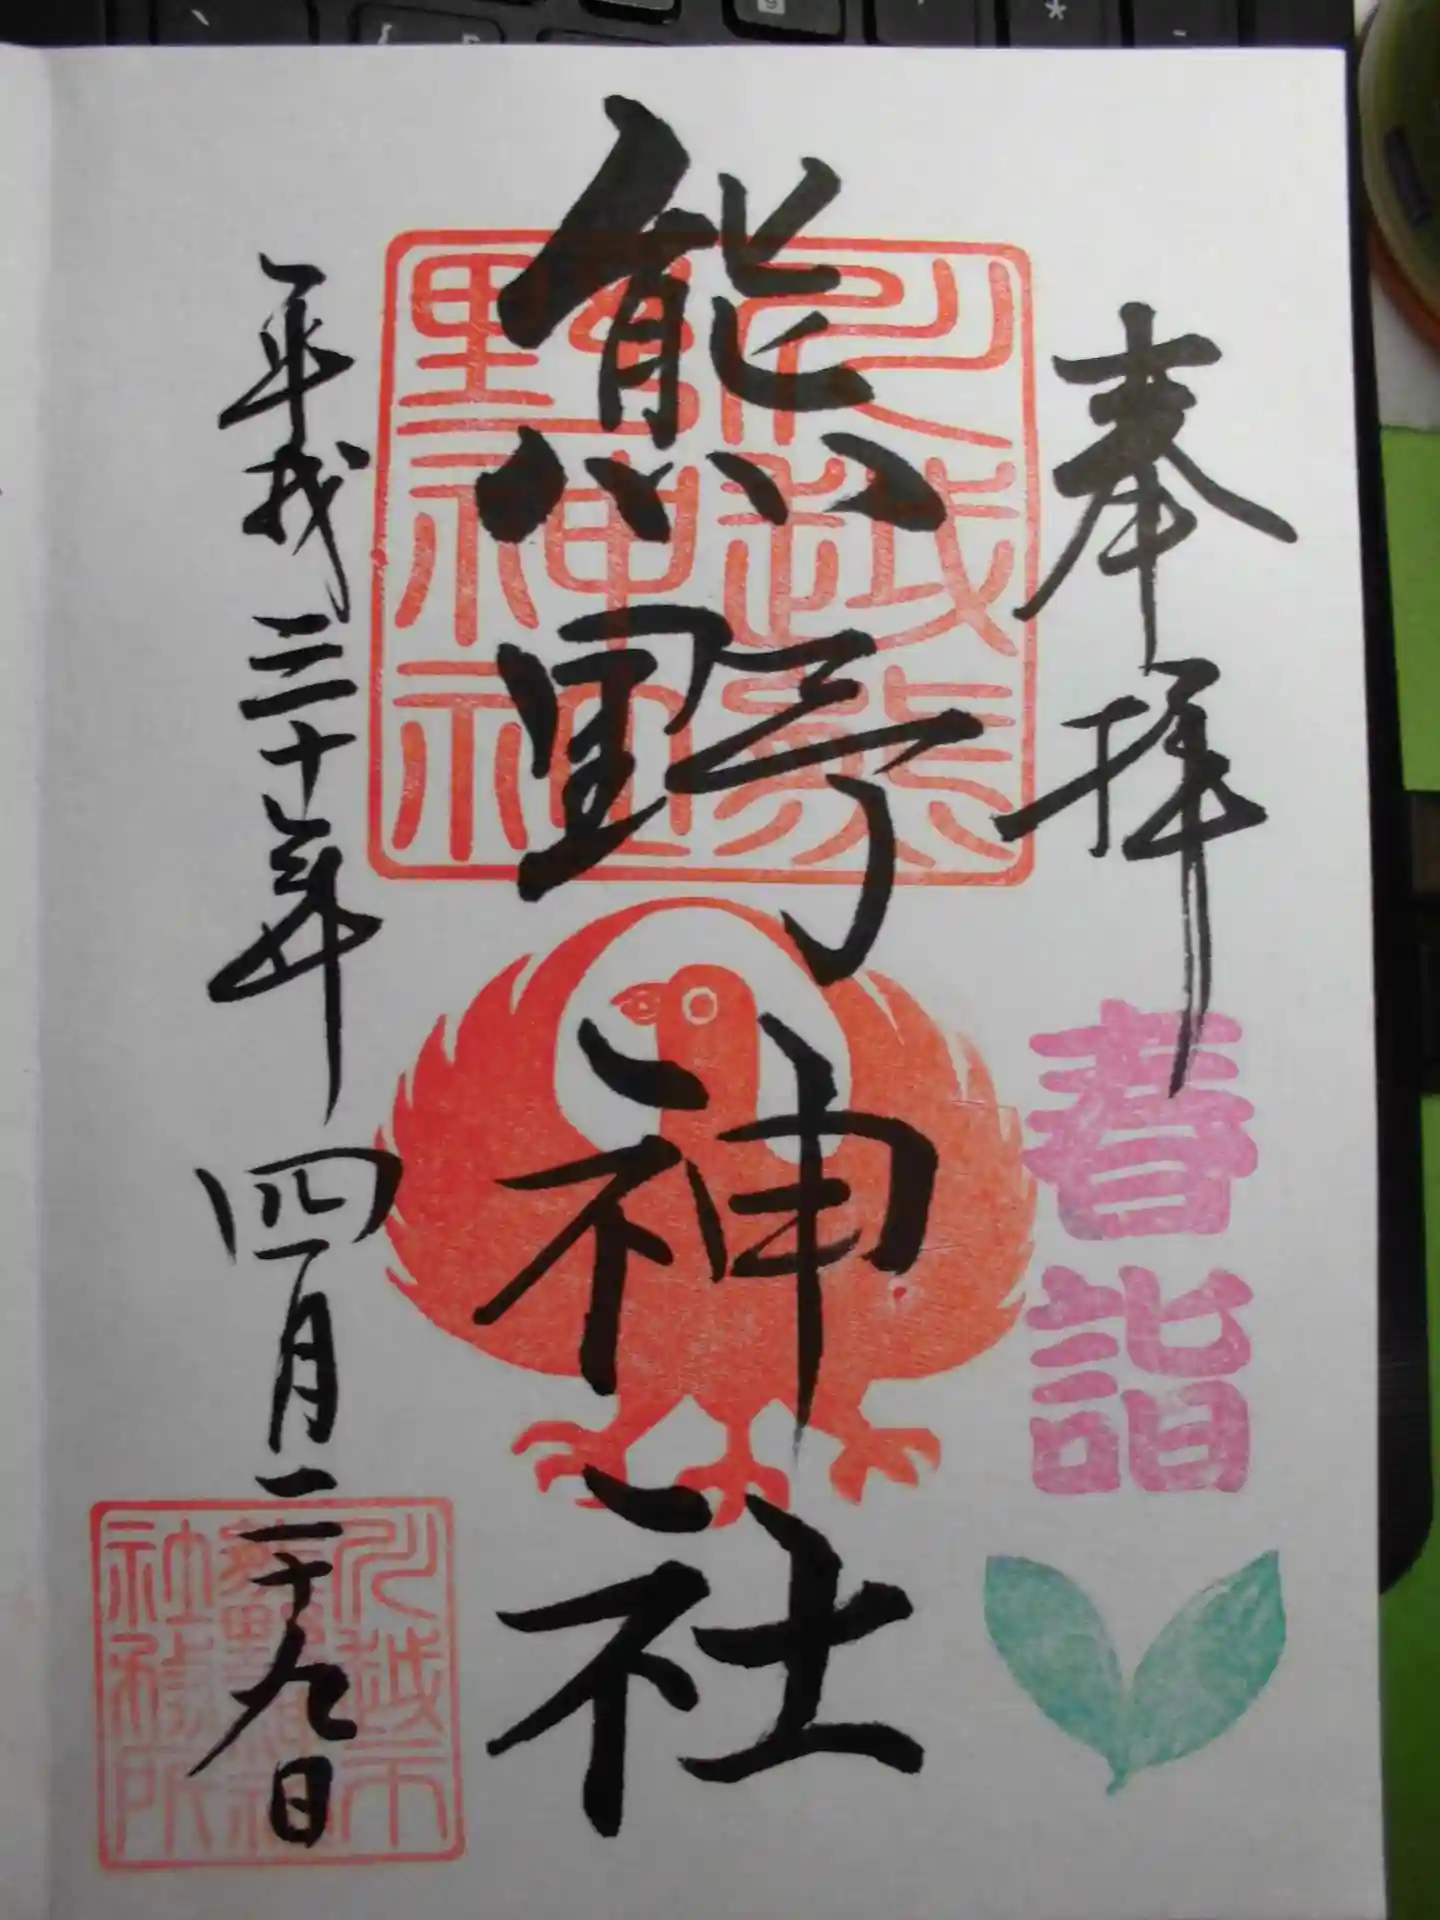 奉拝
春詣
熊野神社
川越熊
野神社
平成三十年四月二十九日
川越市
熊野神社
社務所